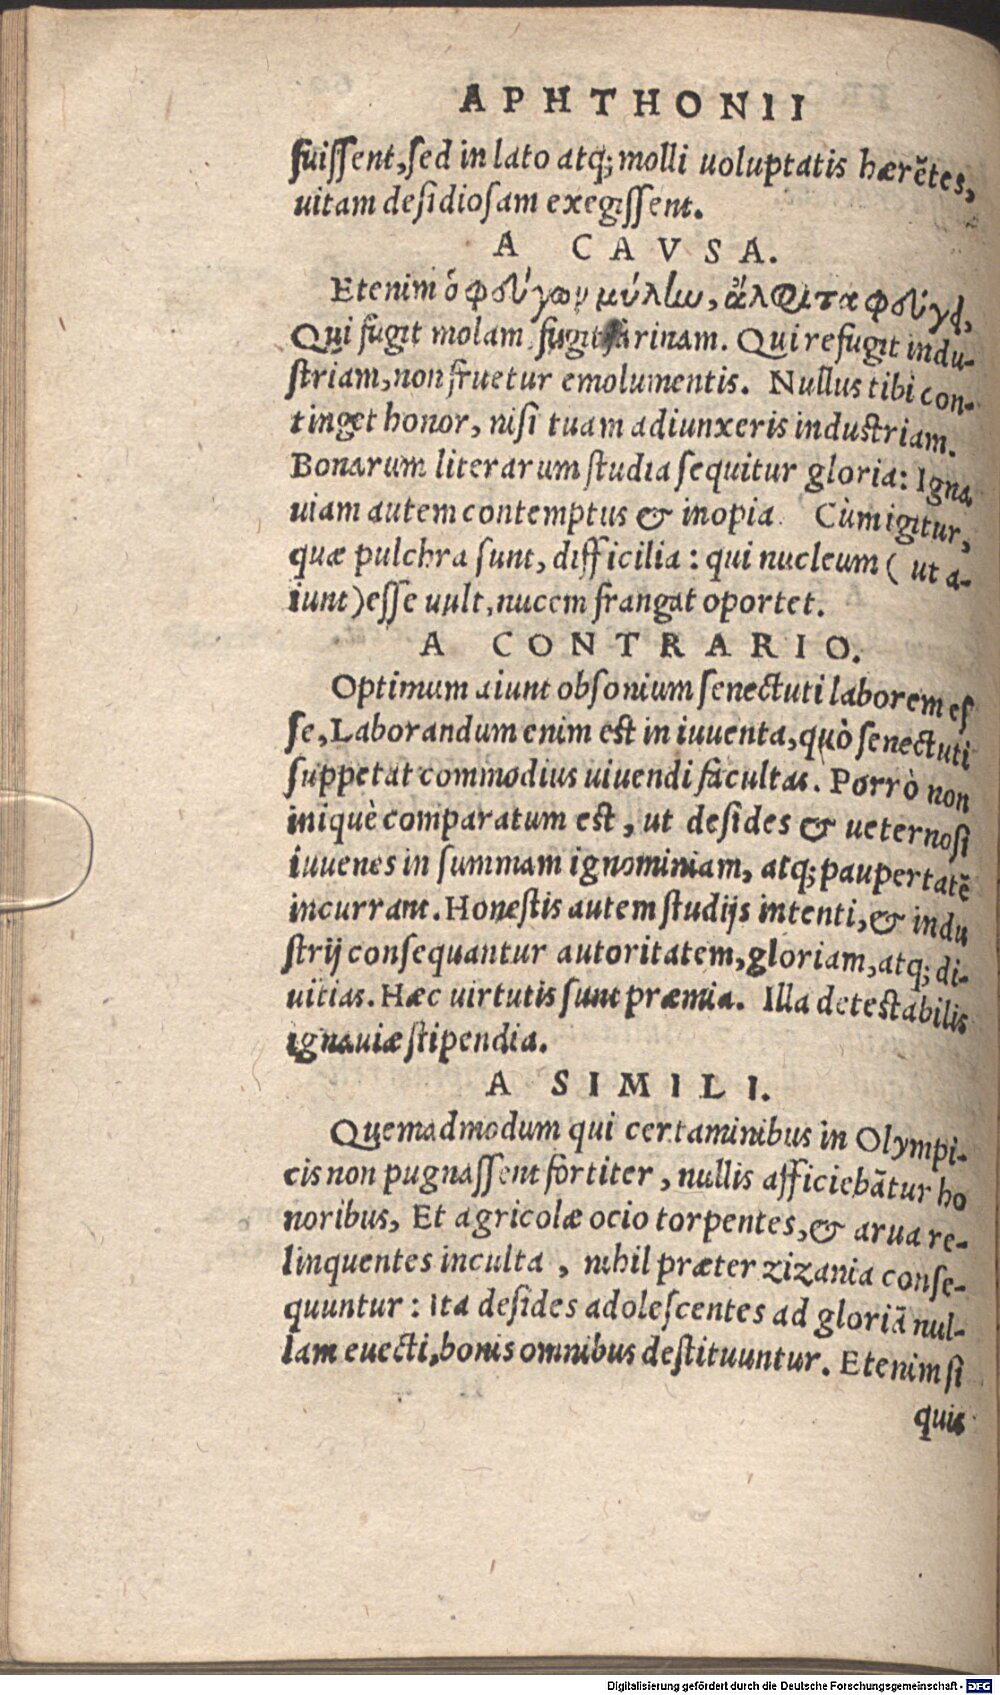 APHTHONII
fuissent, sed in lato atq; molli uoluptatis hærẽtes,
uitam desidiosam exegissent.
A CAVSA.
Etenim ὁ φεύγων μύλων, ἄλφιτα φεύγει,
Qui fugit molam fugit farinam. Qui refugit indu-
striam, non fruetur emolumentis. Nullus tibi con-
tinget honor, nisi tuam adiunxeris industriam.
Bonarum literarum studia sequitur gloria: Igna
uiam autem contemptus & inopia. Cùm igitur,
quæ pulchra sunt, difficilia: qui nucleum (ut a-
iunt) esse uult, nucem frangat oportet.
A CONTRARIO.
Optimum aiunt obsonium senectuti laborem es
se, Laborandum enim est in iuuenta, quò senectuti
suppetat commodius uiuendi facultas. Porrò non
iniquè comparatum est, ut desides & ueternosi
iuuenes in summam ignominiam, atq; paupertatẽ
incurrant. Honestis autem studijs intenti, & indu
strij consequantur autoritatem, gloriam, atq; di-
uitias. Hæc uirtutis sunt præmia. Illa detestabilis
ignauiæ stipendia.
A SIMILI.
Quemadmodum qui certaminibus in Olympi-
cis non pugnassent fortiter, nullis afficiebãtur ho
noribus, Et agricolæ ocio torpentes, & arua re-
linquentes inculta, nihil præter zizania conse-
quuntur: Ita desides adolescentes ad gloriã nul-
lam euecti, bonis omnibus destituuntur. Etenim si
quis
Digitalisierung gefördert durch die Deutsche Forschungsgemeinschaft - DFG